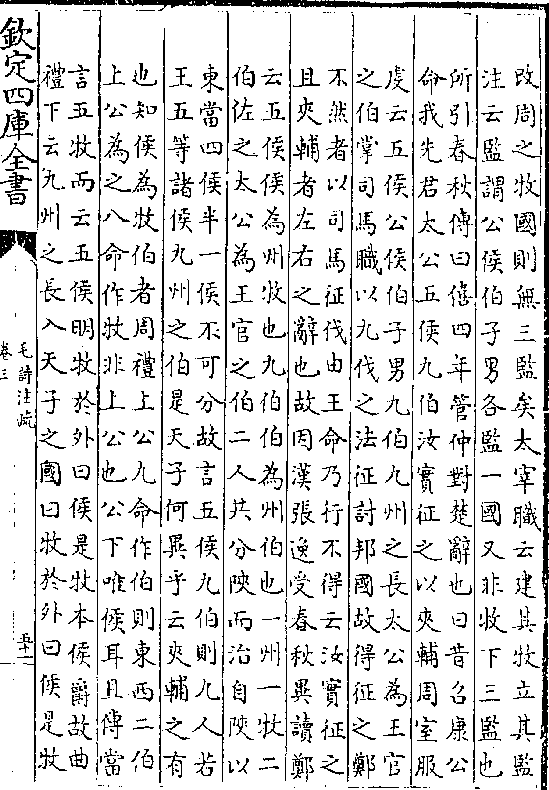 改周之牧國則無三監矣太宰職云建其牧立其監
注云監謂公侯伯子男各監一國又非牧下三監也
所引春秋傳曰僖四年管仲對楚辭也曰昔召康公
命我先君太公五侯九伯汝實征之以夾輔周室服
虔云五侯公侯伯子男九伯九州之長太公為王官
之伯掌司馬職以九伐之法征討邦國故得征之鄭
不然者以司馬征伐由王命乃行不得云汝實征之
且夾輔者左右之辭也故因漢張逸受春秋異讀鄭
云五侯侯為州牧也九伯伯為州伯也一州一牧二
伯佐之太公為王官之伯二人共分陜而治自陜以
東當四侯半一侯不可分故言五侯九伯則九人若
王五等諸侯九州之伯是天子何異乎云夾輔之有
也知侯為牧伯者周禮上公九命作伯則東西二伯
上公為之八命作牧非上公也公下唯侯耳且傳當
言五牧而云五侯明牧於外曰侯是牧本侯爵故曲
禮下云九州之長入天子之國曰牧於外曰侯是牧
欽定四庫全書
毛詩注疏
卷三